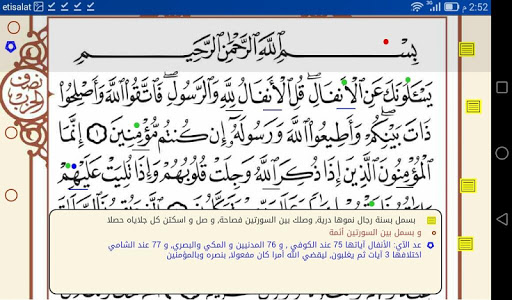 etisalat 3G 2:52 م
بِسْمِ ٱللَّهِ ٱلرَّحْمَٰنِ ٱلرَّحِيمِ
يَسْـَٔلُونَكَ عَنِ ٱلْأَنفَالِ ۖ قُلِ ٱلْأَنفَالُ لِلَّهِ وَٱلرَّسُولِ ۖ فَٱتَّقُوا۟ ٱللَّهَ وَأَصْلِحُوا۟
نصف الحزب
ذَاتَ بَيْنِكُمْ ۖ وَأَطِيعُوا۟ ٱللَّهَ وَرَسُولَهُۥٓ إِن كُنتُم مُّؤْمِنِينَ ١ إِنَّمَا
ٱلْمُؤْمِنُونَ ٱلَّذِينَ إِذَا ذُكِرَ ٱللَّهُ وَجِلَتْ قُلُوبُهُمْ وَإِذَا تُلِيَتْ عَلَيْهِمْ
بسمل بسنة رجال نموها درية, وصلك بين السورتين فصاحة, و صل و اسكتن كل جلاياه حصلا
و بسمل بين السورتين أئمة
عد الآي: الأنفال آياتها 75 عند الكوفي , و 76 المدنيين و المكي والبصري, و 77 عند الشامي
اختلافها 3 آيات ثم يغلبون, ليقضي الله أمرا كان مفعولا, بنصره وبالمؤمنين